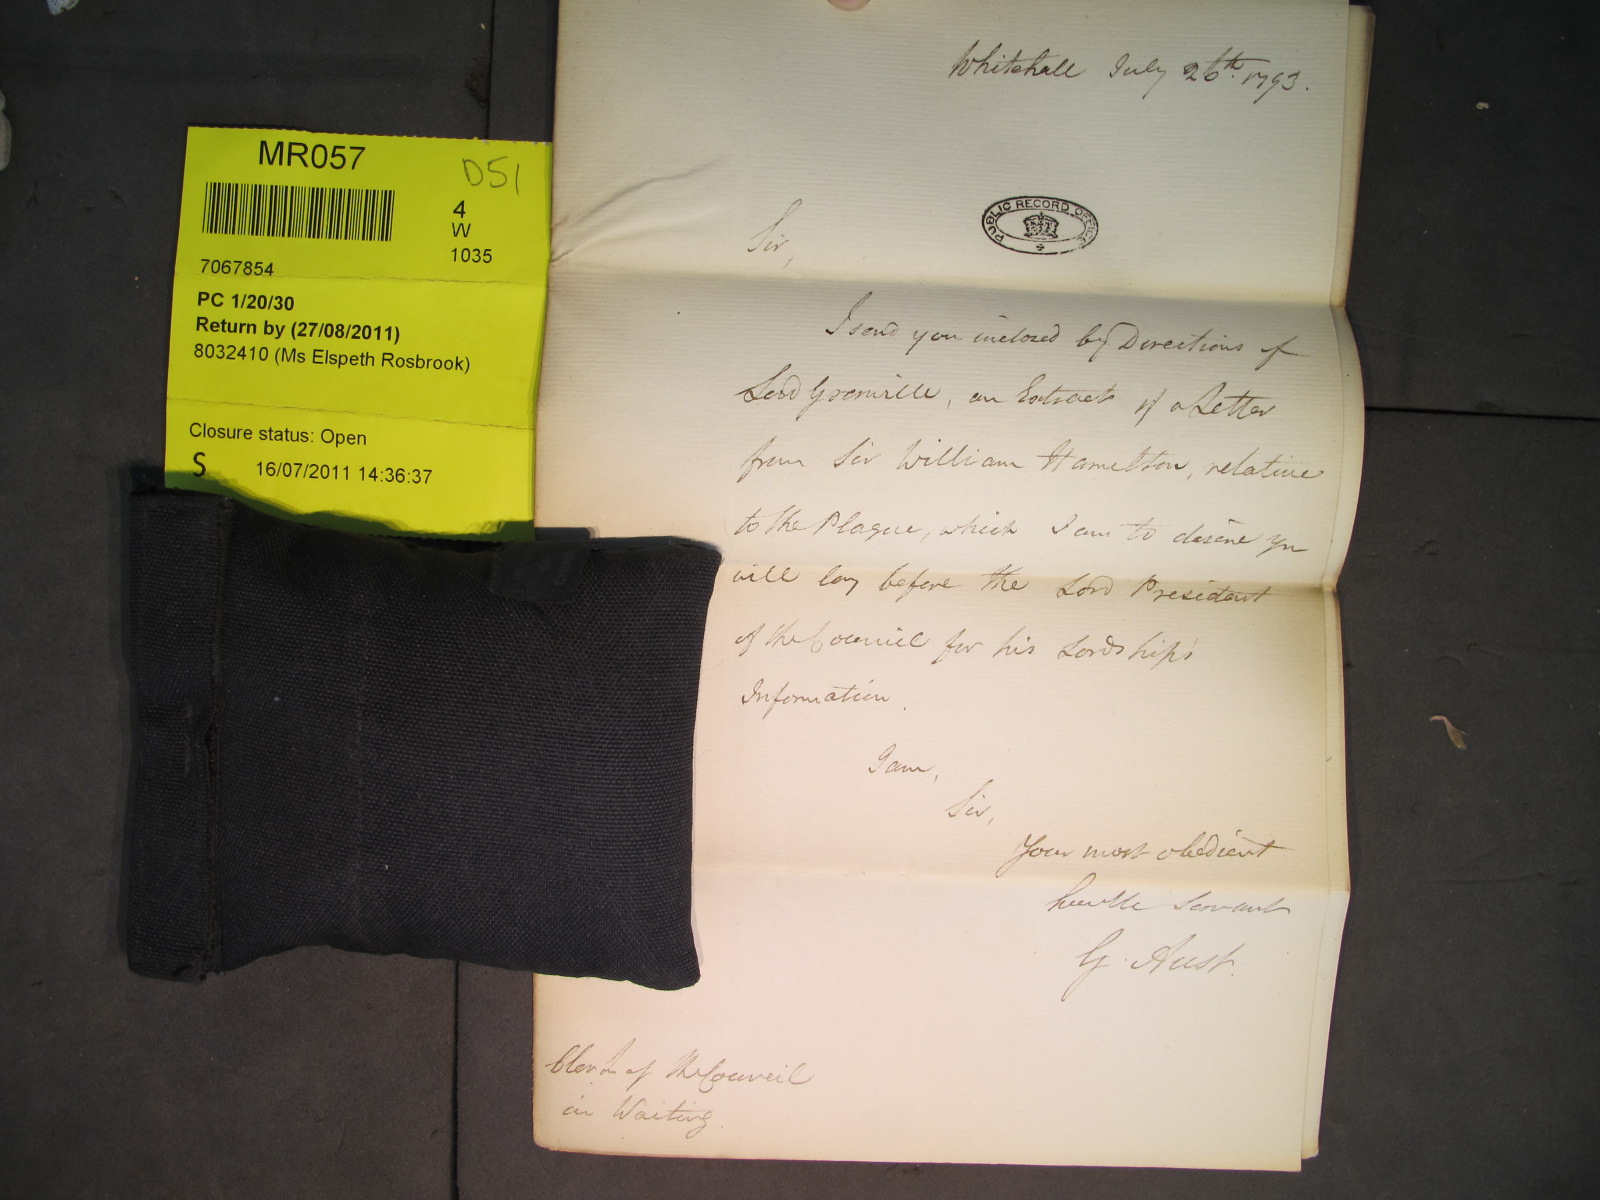 MR057
D51
4
W
1035
7067854
PC 1/20/30
Return by (27/08/2011)
8032410 (Ms Elspeth Rosbrook)
Closure status: Open
S 16/07/2011 14:36:37
Whitehall July 26th. 1793.
PUBLIC RECORD OFFICE
Sir,
I send you inclosed by Directions of
Lord Grenville, an Extract of a Letter
from Sir William Hamilton, relative
to the Plague, which I am to desire you
will lay before the Lord President
of the Council for his Lordship's
Information.
I am,
Sir,
Your most obedient
humble Servant
G. Aust.
Clerk of the Council
in Waiting.